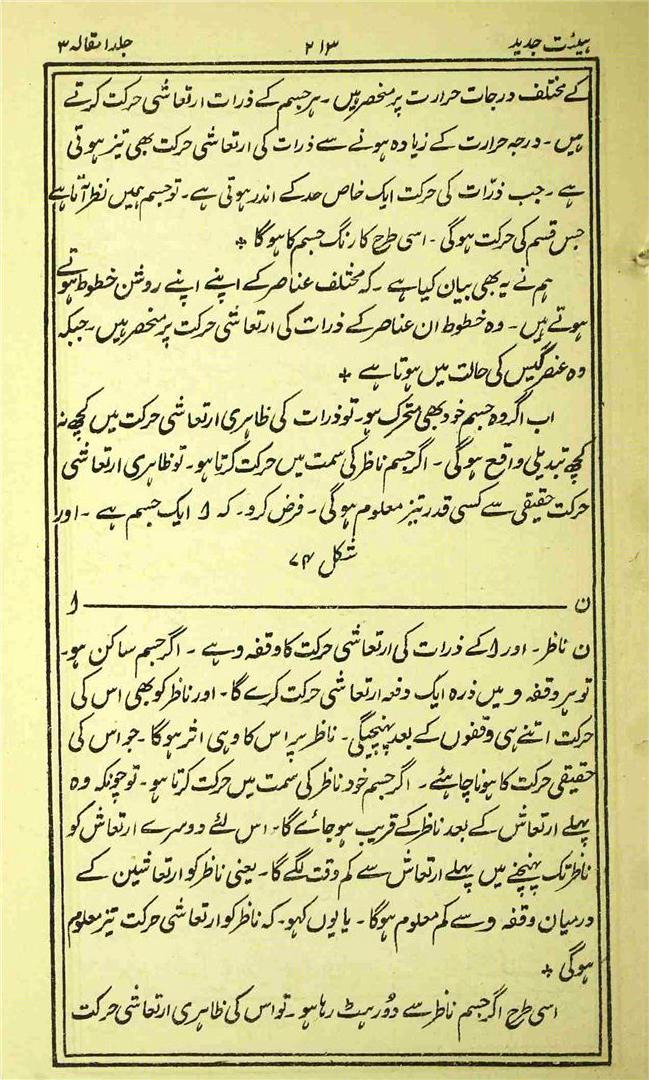 ہیئت جدید ۲۱۳ جلد ۱ مقالہ ۳
کے مختلف درجات حرارت پر منحصر ہیں۔ ہر جسم کے ذرات ارتعاشی حرکت کرتے
ہیں۔ درجہ حرارت کے زیادہ ہونے سے ذرات کی ارتعاشی حرکت بھی تیز ہوتی
ہے۔ جب ذرّات کی حرکت ایک خاص حد کے اندر ہوتی ہے۔ تو جسم ہمیں نظر آتا ہے
جس قسم کی حرکت ہوگی۔ اسی طرح کا رنگ جسم کا ہوگا +
ہم نے یہ بھی بیان کیا ہے۔ کہ مختلف عناصر کے اپنے اپنے روشن خطوط ہوتے
ہوتے ہیں۔ وہ خطوط ان عناصر کے ذرات کی ارتعاشی حرکت پر منحصر ہیں۔ جبکہ
وہ عنصر گیس کی حالت میں ہوتا ہے +
اب اگر وہ جسم خود بھی متحرک ہو۔ تو ذرات کی ظاہری ارتعاشی حرکت میں کچھ نہ
کچھ تبدیلی واقع ہوگی۔ اگر جسم ناظر کی سمت میں حرکت کرتا ہو۔ تو ظاہری ارتعاشی
حرکت حقیقی سے کسی قدر تیز معلوم ہوگی۔ فرض کرو۔ کہ ا ایک جسم ہے۔ اور
شکل ۷۴
ن ا
ن ناظر۔ اور ا کے ذرات کی ارتعاشی حرکت کا وقفہ و ہے۔ اگر جسم ساکن ہو۔
تو ہر وقفہ و میں ذرہ ایک دفعہ ارتعاشی حرکت کرے گا۔ اور ناظر کو بھی اس کی
حرکت اتنے ہی وقفوں کے بعد پہنچیگی۔ ناظر پر اس کا وہی اثر ہوگا۔ جو اس کی
حقیقی حرکت کا ہونا چاہئے۔ اگر جسم خود ناظر کی سمت میں حرکت کرتا ہو۔ تو چونکہ وہ
پہلے ارتعاش کے بعد ناظر کے قریب ہو جائے گا۔ اس لئے دوسرے ارتعاش کو
ناظر تک پہنچنے میں پہلے ارتعاش سے کم وقت لگے گا۔ یعنی ناظر کو ارتعاشین کے
درمیان وقفہ و سے کم معلوم ہوگا۔ یا یوں کہو۔ کہ ناظر کو ارتعاشی حرکت تیز معلوم
ہوگی +
اسی طرح اگر جسم ناظر سے دُور ہٹ رہا ہو۔ تو اس کی ظاہری ارتعاشی حرکت